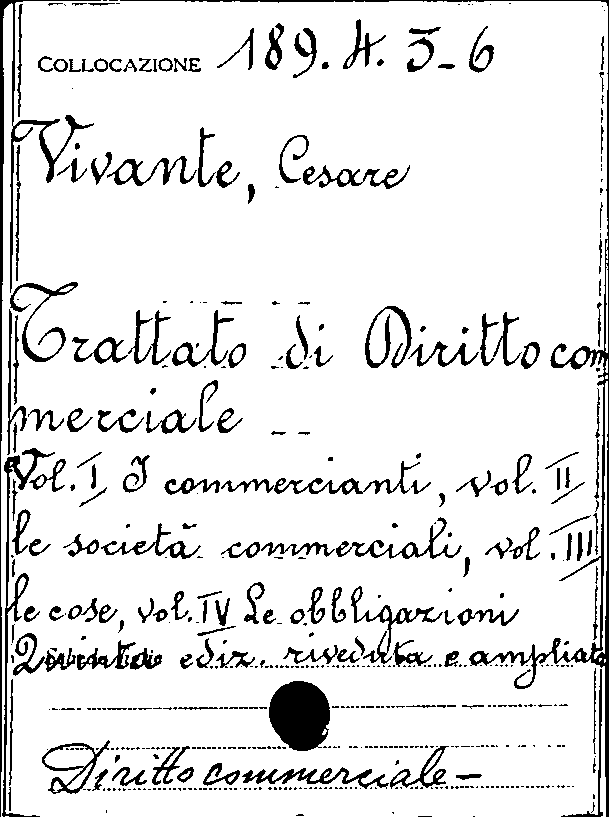 COLLOCAZIONE 189. 4. 3-6
Vivante, Cesare
Trattato di Diritto com=
merciale --
Vol. I, I commercianti, vol. II
le società commerciali, vol. III
le cose, vol. IV Le obbligazioni
Quinta ediz. riveduta e ampliata
Diritto commerciale -